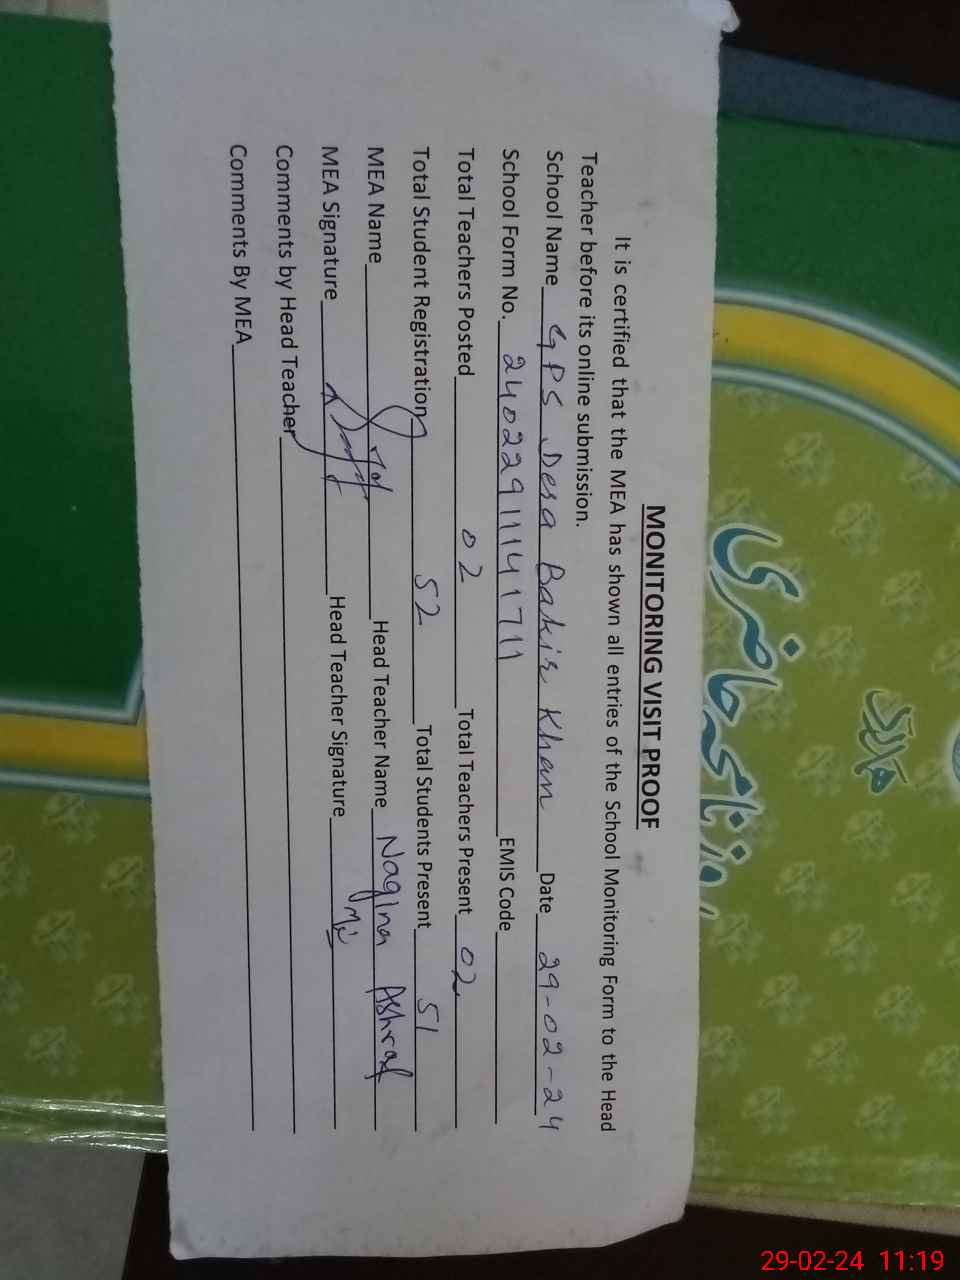 ہمارا
روزنامچہ حاضری
MONITORING VISIT PROOF
It is certified that the MEA has shown all entries of the School Monitoring Form to the Head
Teacher before its online submission.
School Name GPS Dera Bakir Khan Date 29-02-24
School Form No. 24022911141711 EMIS Code
Total Teachers Posted 02 Total Teachers Present 02
Total Student Registration 52 Total Students Present 51
MEA Name Head Teacher Name Nagina Ashraf
MEA Signature Head Teacher Signature
Comments by Head Teacher
Comments By MEA
29-02-24 11:19